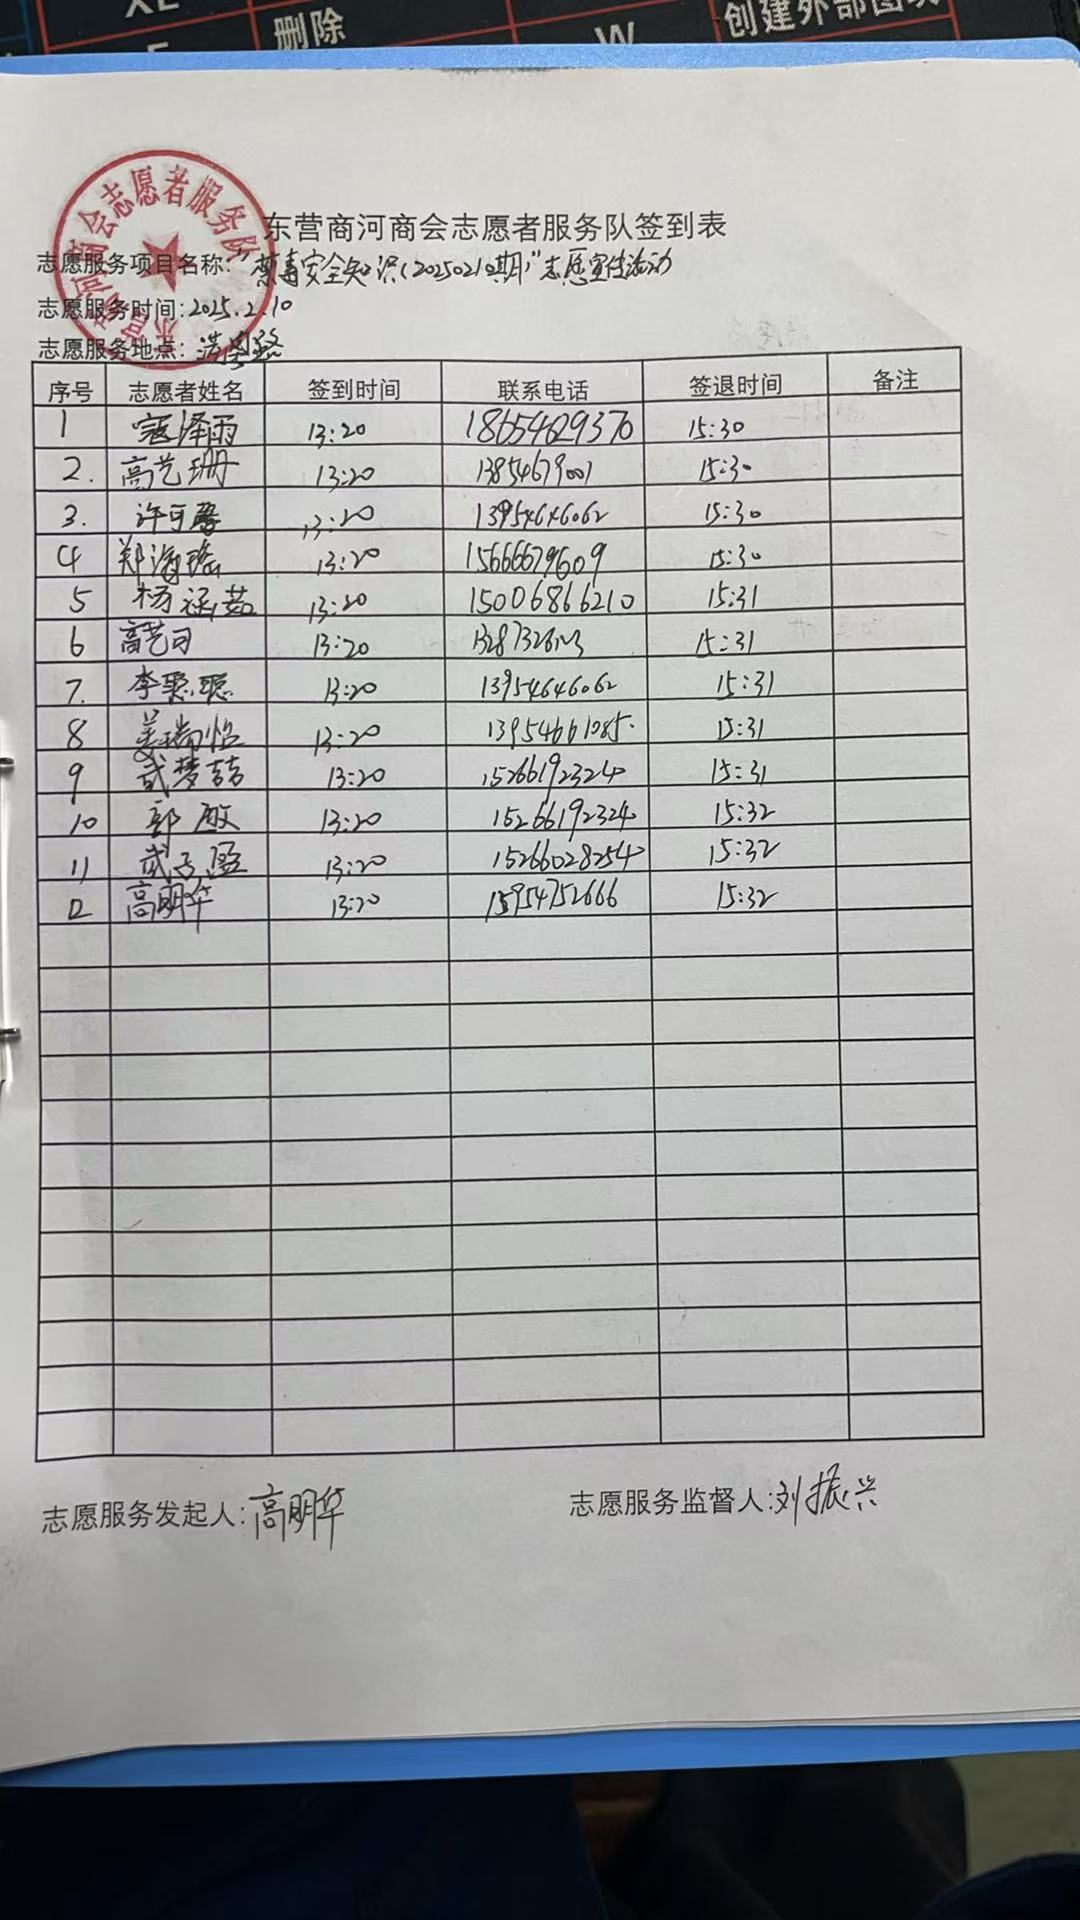 XL
删除
W
创建外部图块
东营商河商会志愿者服务队
东营商河商会志愿者服务队签到表
志愿服务项目名称:"禁毒安全知识(20250210期)"志愿宣传活动
志愿服务时间:2025.2.10
志愿服务地点:
序号 志愿者姓名 签到时间 联系电话 签退时间 备注
1 寇泽雨 13:20 18654629370 15:30
2. 高艺珊 13:20 13854679001 15:30
3. 许可馨 13:20 13954646062 15:30
4 郑海瑶 13:20 15666679609 15:30
5 杨禄茹 13:20 15006866210 15:31
6 高艺司 13:20 15:31
7. 李聪聪 13:20 13954646062 15:31
8 姜瑞怡 13:20 13954661085. 15:31
9 武梦喆 13:20 15266192324 15:31
10 郭敏 13:20 15266192324 15:32
11 武子盈 13:20 15266028254 15:32
12 高明华 13:20 15954752666 15:32
志愿服务发起人:高明华 志愿服务监督人:刘振兴